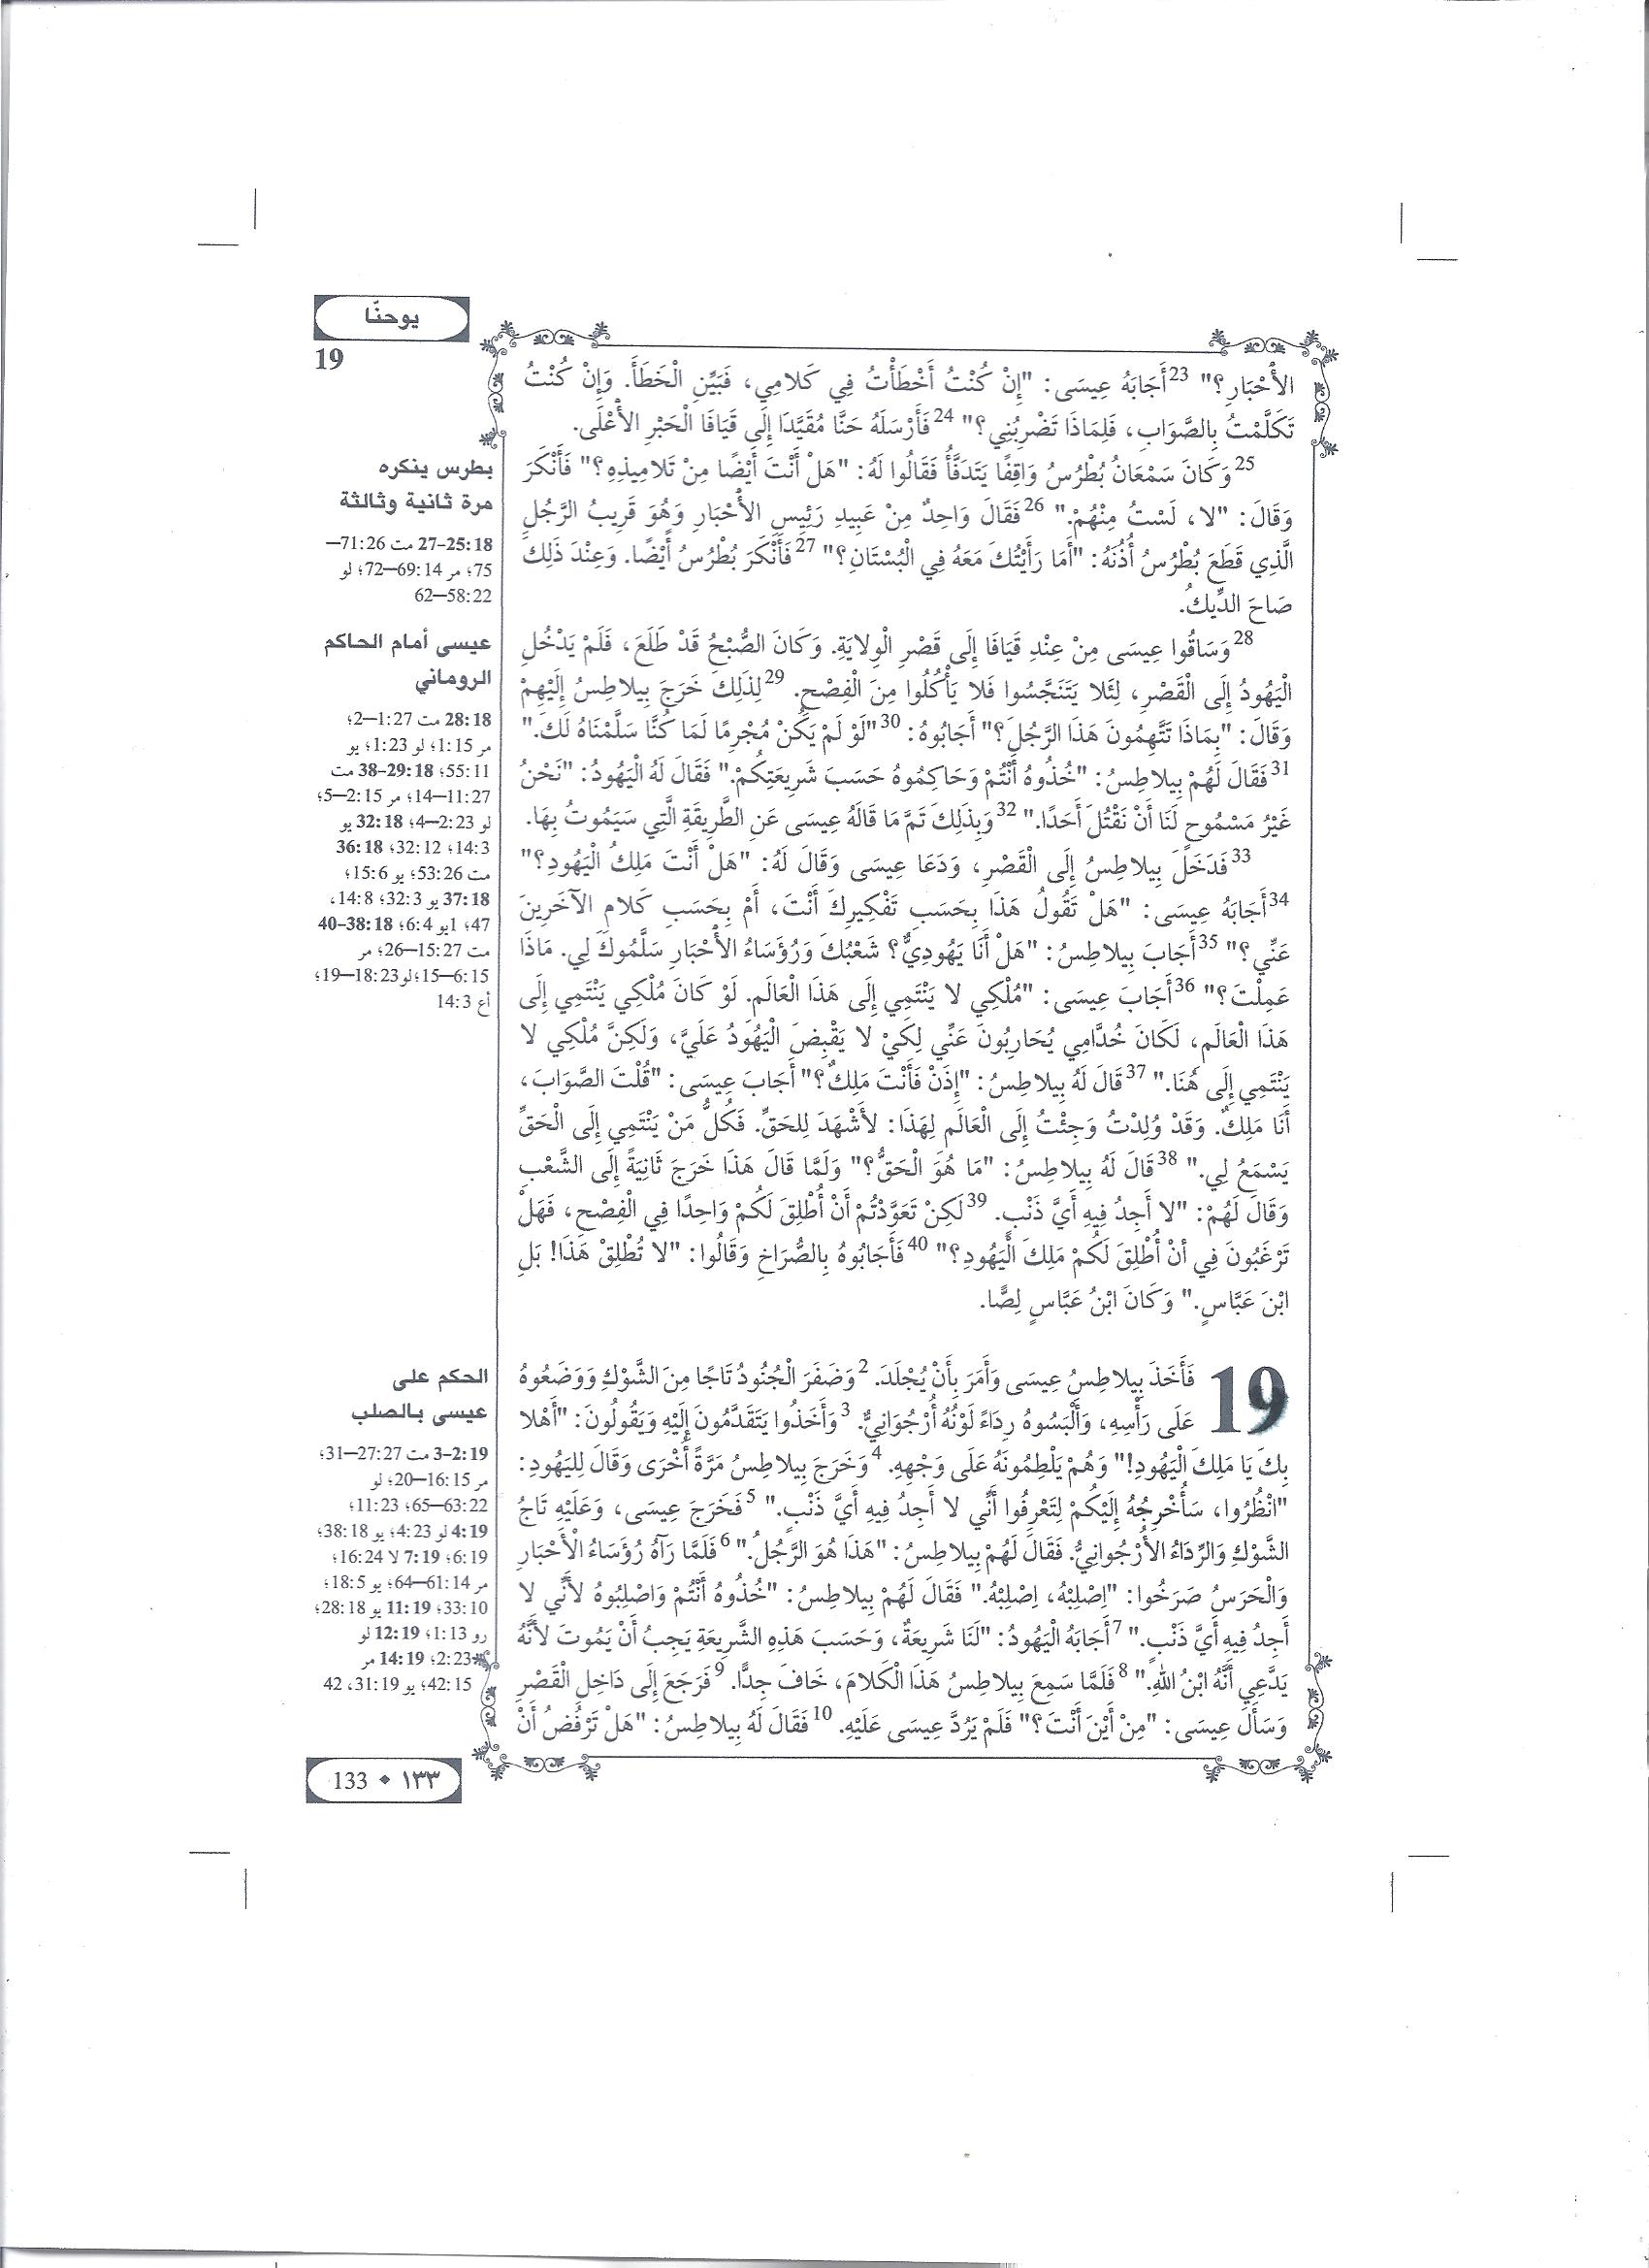 يوحنّا
19
الأَحْبَارِ؟" 23أَجَابَهُ عِيسَى: "إِنْ كُنْتُ أَخْطَأْتُ فِي كَلامِي، فَبَيِّنِ الْخَطَأَ. وَإِنْ كُنْتُ
تَكَلَّمْتُ بِالصَّوَابِ، فَلِمَاذَا تَضْرِبُنِي؟" 24فَأَرْسَلَهُ حَنَّا مُقَيَّدًا إِلَى قَيَافَا الْحَبْرِ الأَعْلَى.
25وَكَانَ سَمْعَانُ بُطْرُسُ وَاقِفًا يَتَدَفَّأُ فَقَالُوا لَهُ: "هَلْ أَنْتَ أَيْضًا مِنْ تَلامِيذِهِ؟" فَأَنْكَرَ
وَقَالَ: "لا، لَسْتُ مِنْهُمْ." 26فَقَالَ وَاحِدٌ مِنْ عَبِيدِ رَئِيسِ الأَحْبَارِ وَهُوَ قَرِيبُ الرَّجُلِ
الَّذِي قَطَعَ بُطْرُسُ أُذُنَهُ: "أَمَا رَأَيْتُكَ مَعَهُ فِي الْبُسْتَانِ؟" 27فَأَنْكَرَ بُطْرُسُ أَيْضًا. وَعِنْدَ ذَلِكَ
صَاحَ الدِّيكُ.
28وَسَاقُوا عِيسَى مِنْ عِنْدِ قَيَافَا إِلَى قَصْرِ الْوِلايَةِ. وَكَانَ الصُّبْحُ قَدْ طَلَعَ، فَلَمْ يَدْخُلِ
الْيَهُودُ إِلَى الْقَصْرِ، لِئَلا يَتَنَجَّسُوا فَلا يَأْكُلُوا مِنَ الْفِصْحِ. 29لِذَلِكَ خَرَجَ بِيلاطِسُ إِلَيْهِمْ
وَقَالَ: "بِمَاذَا تَتَّهِمُونَ هَذَا الرَّجُلَ؟" أَجَابُوهُ: 30"لَوْ لَمْ يَكُنْ مُجْرِمًا لَمَا كُنَّا سَلَّمْنَاهُ لَكَ."
31فَقَالَ لَهُمْ بِيلاطِسُ: "خُذُوهُ أَنْتُمْ وَحَاكِمُوهُ حَسَبَ شَرِيعَتِكُمْ." فَقَالَ لَهُ الْيَهُودُ: "نَحْنُ
غَيْرُ مَسْمُوحٍ لَنَا أَنْ نَقْتُلَ أَحَدًا." 32وَبِذَلِكَ تَمَّ مَا قَالَهُ عِيسَى عَنِ الطَّرِيقَةِ الَّتِي سَيَمُوتُ بِهَا.
33فَدَخَلَ بِيلاطِسُ إِلَى الْقَصْرِ، وَدَعَا عِيسَى وَقَالَ لَهُ: "هَلْ أَنْتَ مَلِكُ الْيَهُودِ؟"
34أَجَابَهُ عِيسَى: "هَلْ تَقُولُ هَذَا بِحَسَبِ تَفْكِيرِكَ أَنْتَ، أَمْ بِحَسَبِ كَلامِ الآخَرِينَ
عَنِّي؟" 35أَجَابَ بِيلاطِسُ: "هَلْ أَنَا يَهُودِيٌّ؟ شَعْبُكَ وَرُؤَسَاءُ الأَحْبَارِ سَلَّمُوكَ لِي. مَاذَا
عَمِلْتَ؟" 36أَجَابَ عِيسَى: "مُلْكِي لا يَنْتَمِي إِلَى هَذَا الْعَالَمِ. لَوْ كَانَ مُلْكِي يَنْتَمِي إِلَى
هَذَا الْعَالَمِ، لَكَانَ خُدَّامِي يُحَارِبُونَ عَنِّي لِكَيْ لا يَقْبِضَ الْيَهُودُ عَلَيَّ، وَلَكِنَّ مُلْكِي لا
يَنْتَمِي إِلَى هُنَا." 37قَالَ لَهُ بِيلاطِسُ: "إِذَنْ فَأَنْتَ مَلِكٌ؟" أَجَابَ عِيسَى: "قُلْتَ الصَّوَابَ،
أَنَا مَلِكٌ. وَقَدْ وُلِدْتُ وَجِئْتُ إِلَى الْعَالَمِ لِهَذَا: لأَشْهَدَ لِلحَقِّ. فَكُلُّ مَنْ يَنْتَمِي إِلَى الْحَقِّ
يَسْمَعُ لِي." 38قَالَ لَهُ بِيلاطِسُ: "مَا هُوَ الْحَقُّ؟" وَلَمَّا قَالَ هَذَا خَرَجَ ثَانِيَةً إِلَى الشَّعْبِ
وَقَالَ لَهُمْ: "لا أَجِدُ فِيهِ أَيَّ ذَنْبٍ. 39لَكِنْ تَعَوَّدْتُمْ أَنْ أُطْلِقَ لَكُمْ وَاحِدًا فِي الْفِصْحِ، فَهَلْ
تَرْغَبُونَ فِي أَنْ أُطْلِقَ لَكُمْ مَلِكَ الْيَهُودِ؟" 40فَأَجَابُوهُ بِالصُّرَاخِ وَقَالُوا: "لا تُطْلِقْ هَذَا! بَلِ
ابْنَ عَبَّاسٍ." وَكَانَ ابْنُ عَبَّاسٍ لِصًّا.
19 فَأَخَذَ بِيلاطِسُ عِيسَى وَأَمَرَ بِأَنْ يُجْلَدَ. 2وَضَفَرَ الْجُنُودُ تَاجًا مِنَ الشَّوْكِ وَوَضَعُوهُ
عَلَى رَأْسِهِ، وَأَلْبَسُوهُ رِدَاءً لَوْنُهُ أُرْجُوَانِيٌّ. 3وَأَخَذُوا يَتَقَدَّمُونَ إِلَيْهِ وَيَقُولُونَ: "أَهْلا
بِكَ يَا مَلِكَ الْيَهُودِ!" وَهُمْ يَلْطِمُونَهُ عَلَى وَجْهِهِ. 4وَخَرَجَ بِيلاطِسُ مَرَّةً أُخْرَى وَقَالَ لِليَهُودِ:
"انْظُرُوا، سَأُخْرِجُهُ إِلَيْكُمْ لِتَعْرِفُوا أَنِّي لا أَجِدُ فِيهِ أَيَّ ذَنْبٍ." 5فَخَرَجَ عِيسَى، وَعَلَيْهِ تَاجُ
الشَّوْكِ وَالرِّدَاءُ الأُرْجُوانِيُّ. فَقَالَ لَهُمْ بِيلاطِسُ: "هَذَا هُوَ الرَّجُلُ." 6فَلَمَّا رَآهُ رُؤَسَاءُ الْأَحْبَارِ
وَالْحَرَسُ صَرَخُوا: "اِصْلِبْهُ، اِصْلِبْهُ." فَقَالَ لَهُمْ بِيلاطِسُ: "خُذُوهُ أَنْتُمْ وَاصْلِبُوهُ لأَنِّي لا
أَجِدُ فِيهِ أَيَّ ذَنْبٍ." 7أَجَابَهُ الْيَهُودُ: "لَنَا شَرِيعَةٌ، وَحَسَبَ هَذِهِ الشَّرِيعَةِ يَجِبُ أَنْ يَمُوتَ لأَنَّهُ
يَدَّعِي أَنَّهُ ابْنُ اللهِ." 8فَلَمَّا سَمِعَ بِيلاطِسُ هَذَا الْكَلامَ، خَافَ جِدًّا. 9فَرَجَعَ إِلَى دَاخِلِ الْقَصْرِ
وَسَأَلَ عِيسَى: "مِنْ أَيْنَ أَنْتَ؟" فَلَمْ يَرُدَّ عِيسَى عَلَيْهِ. 10فَقَالَ لَهُ بِيلاطِسُ: "هَلْ تَرْفُضُ أَنْ
بطرس ينكره
مرة ثانية وثالثة
27-25:18 مت 71:26—
75؛ مر 69:14—72؛ لو
58:22—62
عيسى أمام الحاكم
الروماني
28:18 مت 1:27—2؛
مر 1:15؛ لو 1:23؛ يو
55:11؛ 29:18-38 مت
11:27—14؛ مر 2:15—5؛
لو 2:23—4؛ 32:18 يو
14:3؛ 32:12؛ 36:18
مت 53:26؛ يو 15:6؛
37:18 يو 32:3؛ 14:8،
47؛ 1يو 6:4؛ 38:18-40
مت 15:27—26؛ مر
6:15—15؛لو18:23—19؛
أع 14:3
الحكم على
عيسى بالصلب
2:19-3 مت 27:27—31؛
مر 16:15—20؛ لو
63:22—65؛ 11:23؛
4:19 لو 4:23؛ يو 38:18؛
6:19؛ 7:19 لا 16:24؛
مر 61:14—64؛ يو 18:5؛
33:10؛ 11:19 يو 28:18؛
رو 1:13؛ 12:19 لو
2:23؛ 14:19 مر
42:15؛ يو 31:19، 42
133 ◆ ١٣٣